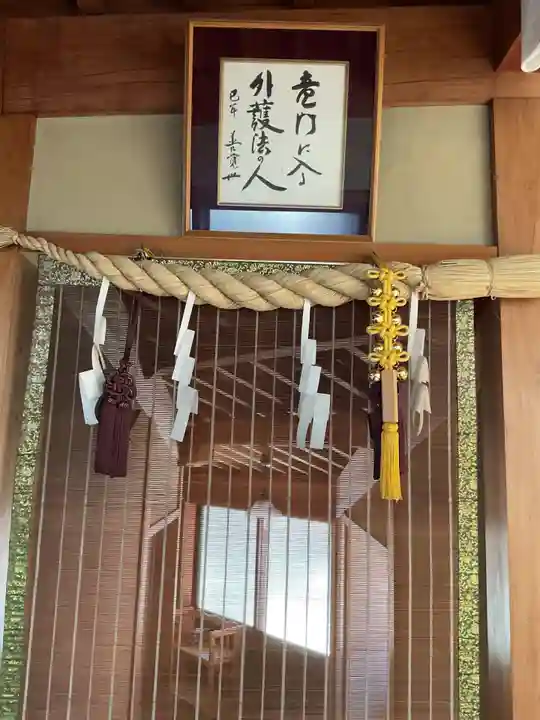 竜門に入る
外護法の人
巳年